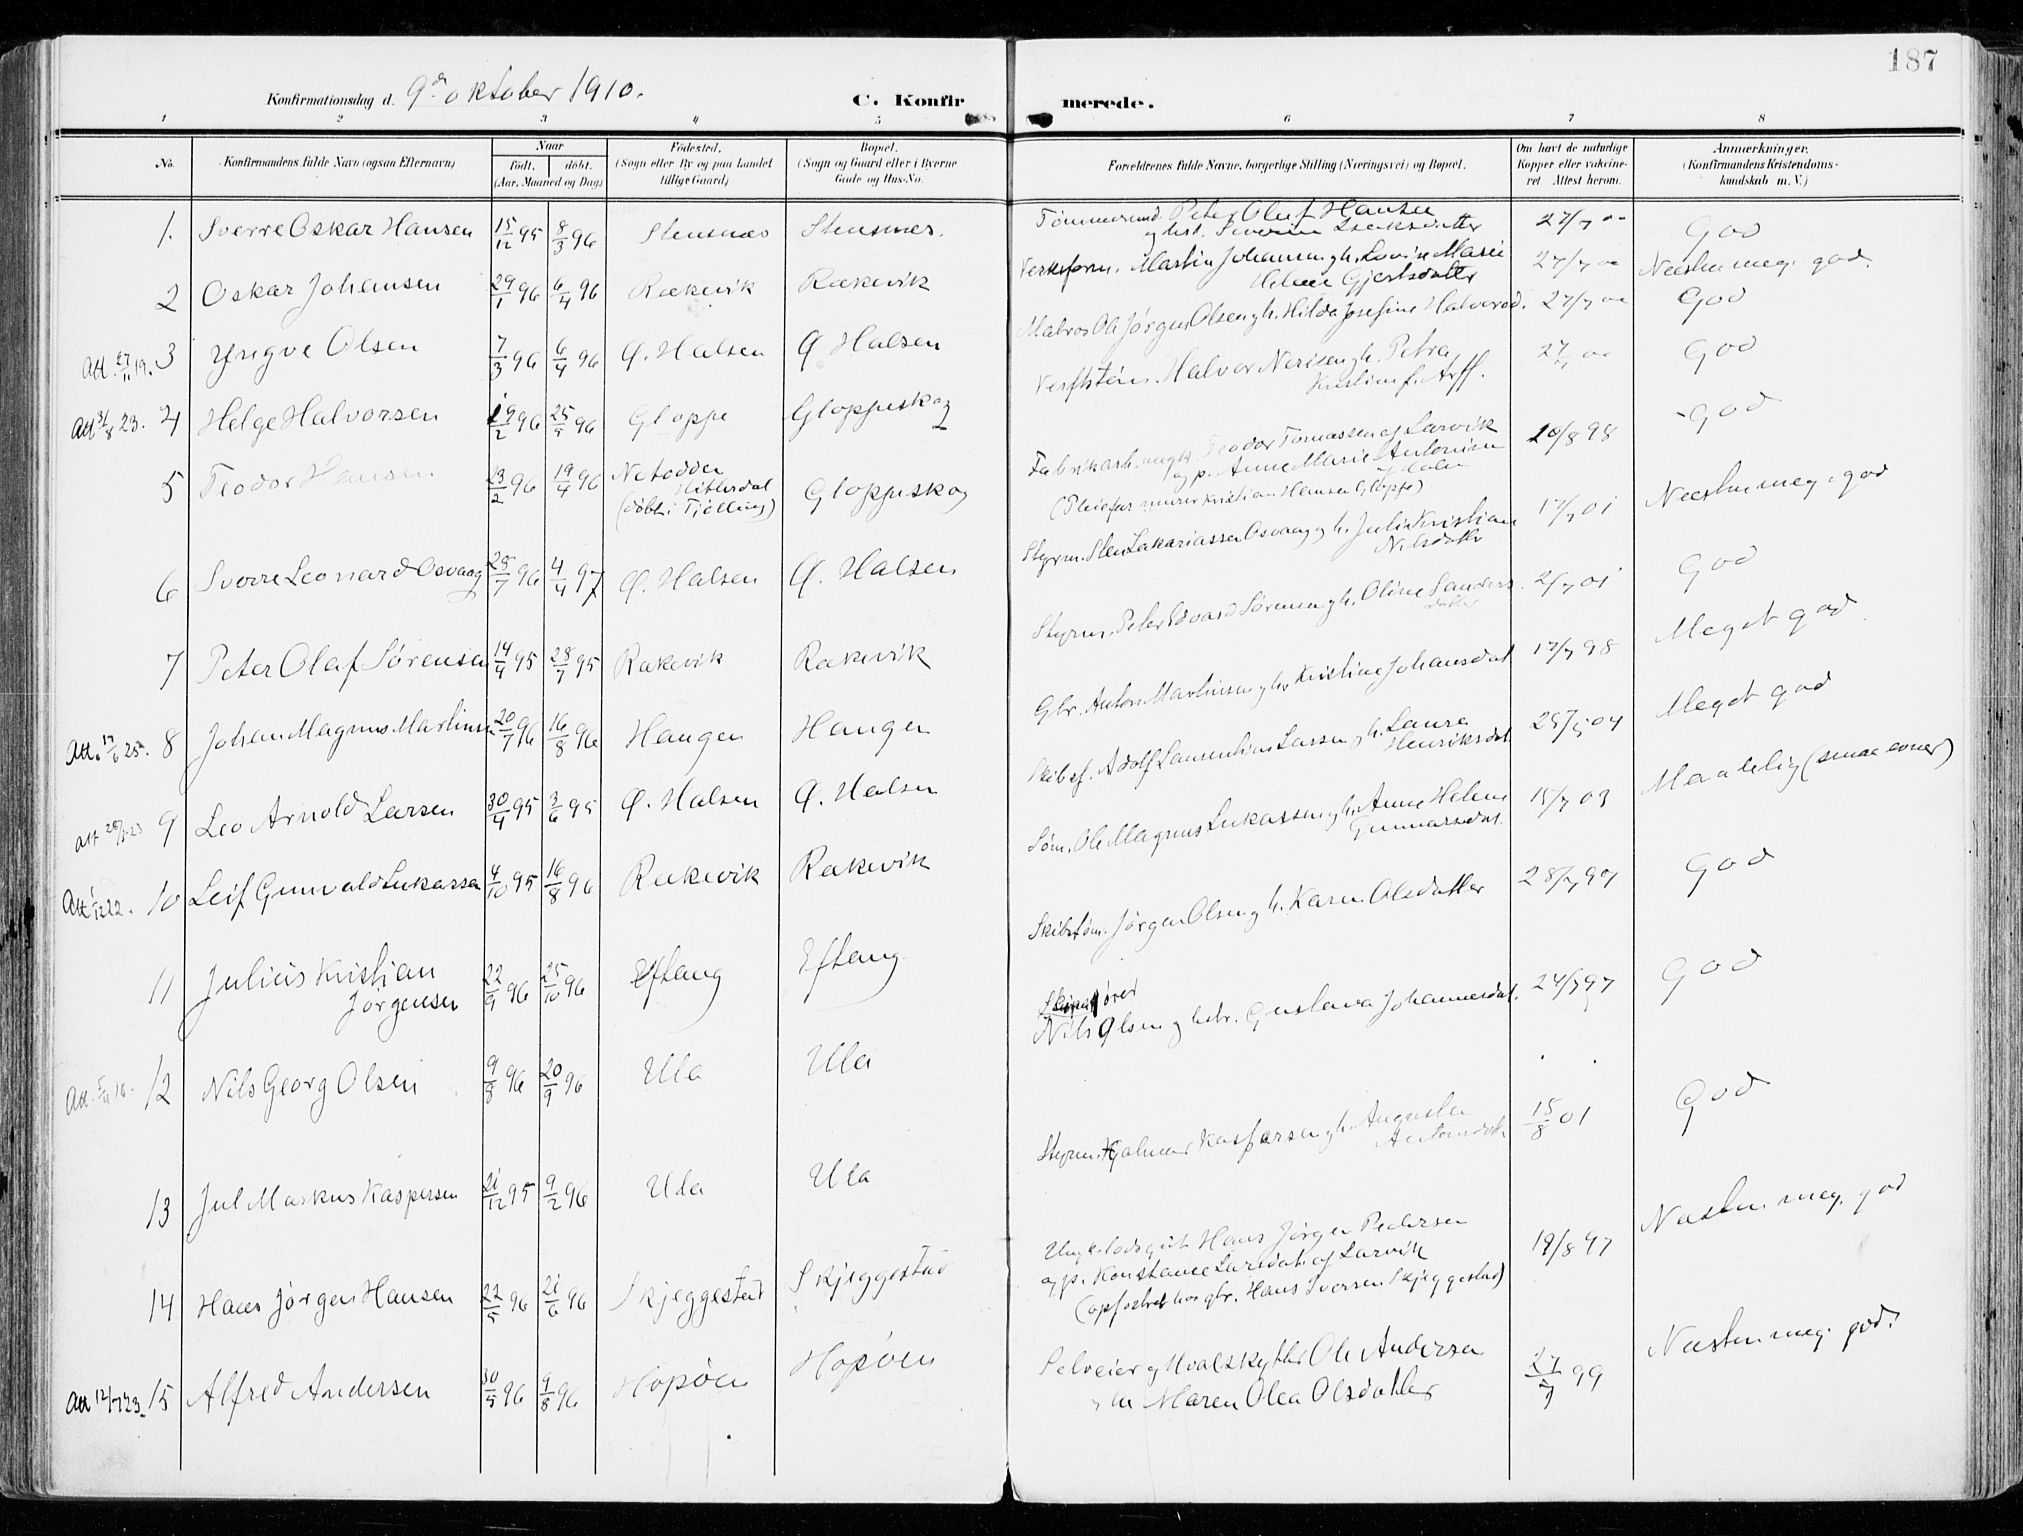 187
Konfirmationsdag d. 9de oktober 1910.
C. Konfirmerede.
1 2 3 4 5 6 7 8
No. Konfirmandens fulde Navn (ogsaa Efternavn) Naar født. døbt. (Aar, Maaned og Dag) Fødested. (Sogn eller By og paa Landet tillige Gaard) Bopæl. (Sogn og Gaard eller i Byerne Gade og Hus-No. Forældrenes fulde Navne, borgerlige Stilling (Næringsvei) og Bopæl. Om havt de naturlige Kopper eller vakcineret Attest herom. Anmærkninger. (Konfirmandens Kristendomskundskab m. V.)
1. Sverre Oskar Hansen 15/12 95 8/3 96 Stensnes Stensnes. Tømmermand Peter Oluf Hansen og hst. Severine Isaksdatter 27/7 00 God
2 Oskar Johansen 29/1 96 6/4 96 Rækevik Rækevik Verksform. Martin Johansen og h. Lovise Marie Helene Gjertsdatter 27/7 00 Næsten meg. god.
Att. 27/11 19. 3 Yngve Olsen 7/3 96 6/4 96 Ø. Halsen Ø Halsen Matros Ole Jørgen Olsen og h. Hilda Josefine Halvorsd. 27/7 00 God
Att 31/8 23. 4 Helge Halvorsen 19/2 96 25/5 96 Gloppe Gloppeskog Verftstøm. Halvor Nerisen og h. Petra Kristine f. Arff. 27/7 00 God
5 Teodor Hansen 23/2 96 19/4 96 Notodden Hitterdal (døbt i Tjølling) Gloppeskog Fabrikarb. ungk. Teodor Tomassen af Larvik og p. Anne Marie Antonsen (Pleiefar murer Kristian Hansen Gloppe) 20/8 98 God
6 Sverre Leonard Osvaag 28/7 96 4/4 97 Ø. Halsen Ø. Halsen Styrm. Sten Sakariassen Osvaag og h. Juli Kristiane Nilsdatter 17/7 01 Næsten meg. god
7 Peter Olaf Sørensen 14/4 95 28/7 95 Rækevik Rækevik Styrm. Peter Edvard Sørensen og h. Oline Sandersdatter 2/7 01 God
Att. 17/6 25. 8 Johan Magnus Martinsen 20/7 96 16/8 96 Haugen Haugen Gbr. Anton Martinsen og h. Kristine Johansdat 17/7 98 Meget god
Att 9 Leo Arnold Larsen 30/4 95 3/6 95 Ø. Halsen Ø. Halsen Skibsf. Adolf Laurentius Larsen og h. Laura Henriksdat 04 Meget god
Att 1/12 22. 10 Leif Gunvald Lukassen 4/10 95 16/8 96 Rækevik Rækevik Søm. Ole Magnus Lukassen og h. Anne Helene Gunnarsdat. 15/7 03 Maadelig (smaa evner)
11 Julius Kristian Jørgensen 22/9 96 25/10 96 Eftang Eftang Skibstøm. Jørgen Olsen og h. Karen Olsdatter 28/7 97 God
Att. 12 Nils Georg Olsen 9/8 96 20/9 96 Ula Ula Nils Olsen og hstr. Gustava Johannesdat. 24/7 97 God
13 Jul Markus Kaspersen 21/12 95 9/2 96 Ula Ula Styrm. Hjalmar Kaspersen og h. Augusta Antonsdat 15/8 01 God
14 Hans Jørgen Hansen 22/5 96 21/6 96 Skjeggestad Skjeggestad Ungk. lodsgut Hans Jørgen Pedersen og p. Konstance Larsdat. af Larvik (opfostret hos gbr. Hans Iversen Skjeggestad) 19/8 97 Næsten meg. god
Att 12/7 23. 15 Alfred Andersen 30/5 96 9/8 96 Hopøen Hopøen Selveier og Hvalskytter Ole Andersen og h. Maren Olea Olsdatter 27/7 99 Næsten meg. god.